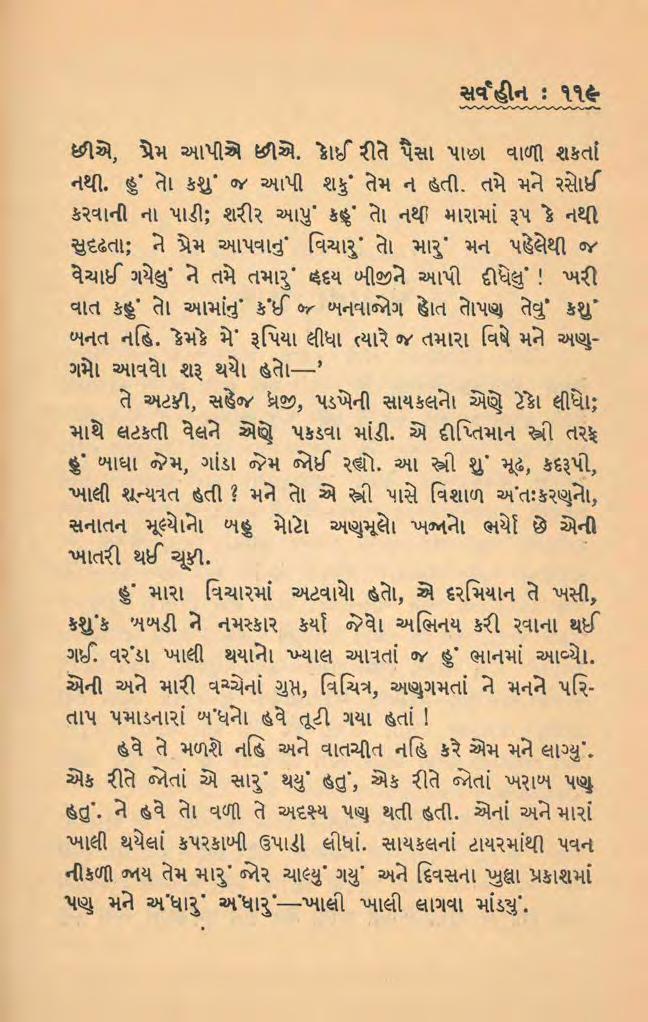 સર્વહીન : ૧૧૯
છીએ, પ્રેમ આપીએ છીએ. કોઈ રીતે પૈસા પાછા વાળી શકતાં
નથી. હું તો કશું જ આપી શકું તેમ ન હતી. તમે મને રસોઈ
કરવાની ના પાડી; શરીર આપું કહું તો નથી મારામાં રૂપ કે નથી
સુદૃઢતા; ને પ્રેમ આપવાનું વિચારું તો મારું મન પહેલેથી જ
વેચાઈ ગયેલું ને તમે તમારું હૃદય બીજીને આપી દીધેલું ! ખરી
વાત કહું તો આમાંનું કંઈ જ બનવાજોગ હોત તોપણ તેવું કશું
બનત નહિ. કેમકે મેં રૂપિયા લીધા ત્યારે જ તમારા વિષે મને અણ-
ગમો આવવો શરૂ થયો હતો—’
તે અટકી, સહેજ ધ્રૂજી, પડખેની સાયકલનો એણે ટેકો લીધો;
માથે લટકતી વેલને એણે પકડવા માંડી. એ દીપ્તિમાન સ્ત્રી તરફ
હું બાઘા જેમ, ગાંડા જેમ જોઈ રહ્યો. આ સ્ત્રી શું મૂઢ, કદરૂપી,
ખાલી શૂન્યવત હતી ? મને તો એ સ્ત્રી પાસે વિશાળ અંતઃકરણનો,
સનાતન મૂલ્યોનો બહુ મોટો અણમૂલો ખજાનો ભર્યો છે એની
ખાતરી થઈ ચૂકી.
હું મારા વિચારમાં અટવાયો હતો, એ દરમિયાન તે ખસી,
કશુંક બબડી ને નમસ્કાર કર્યા જેવો અભિનય કરી રવાના થઈ
ગઈ. વરંડા ખાલી થયાનો ખ્યાલ આવતાં જ હું ભાનમાં આવ્યો.
એની અને મારી વચ્ચેનાં ગુપ્ત, વિચિત્ર, અણગમતાં ને મનને પરિ-
તાપ પમાડનારાં બંધનો હવે તૂટી ગયા હતાં !
હવે તે મળશે નહિ અને વાતચીત નહિ કરે એમ મને લાગ્યું.
એક રીતે જોતાં એ સારું થયું હતું, એક રીતે જોતાં ખરાબ પણ
હતું. ને હવે તો વળી તે અદૃશ્ય પણ થતી હતી. એનાં અને મારાં
ખાલી થયેલાં કપરકાબી ઉપાડી લીધાં. સાયકલનાં ટાયરમાંથી પવન
નીકળી જાય તેમ મારું જોર ચાલ્યું ગયું અને દિવસના ખુલ્લા પ્રકાશમાં
પણ મને અંધારું અંધારું—ખાલી ખાલી લાગવા માંડયું.